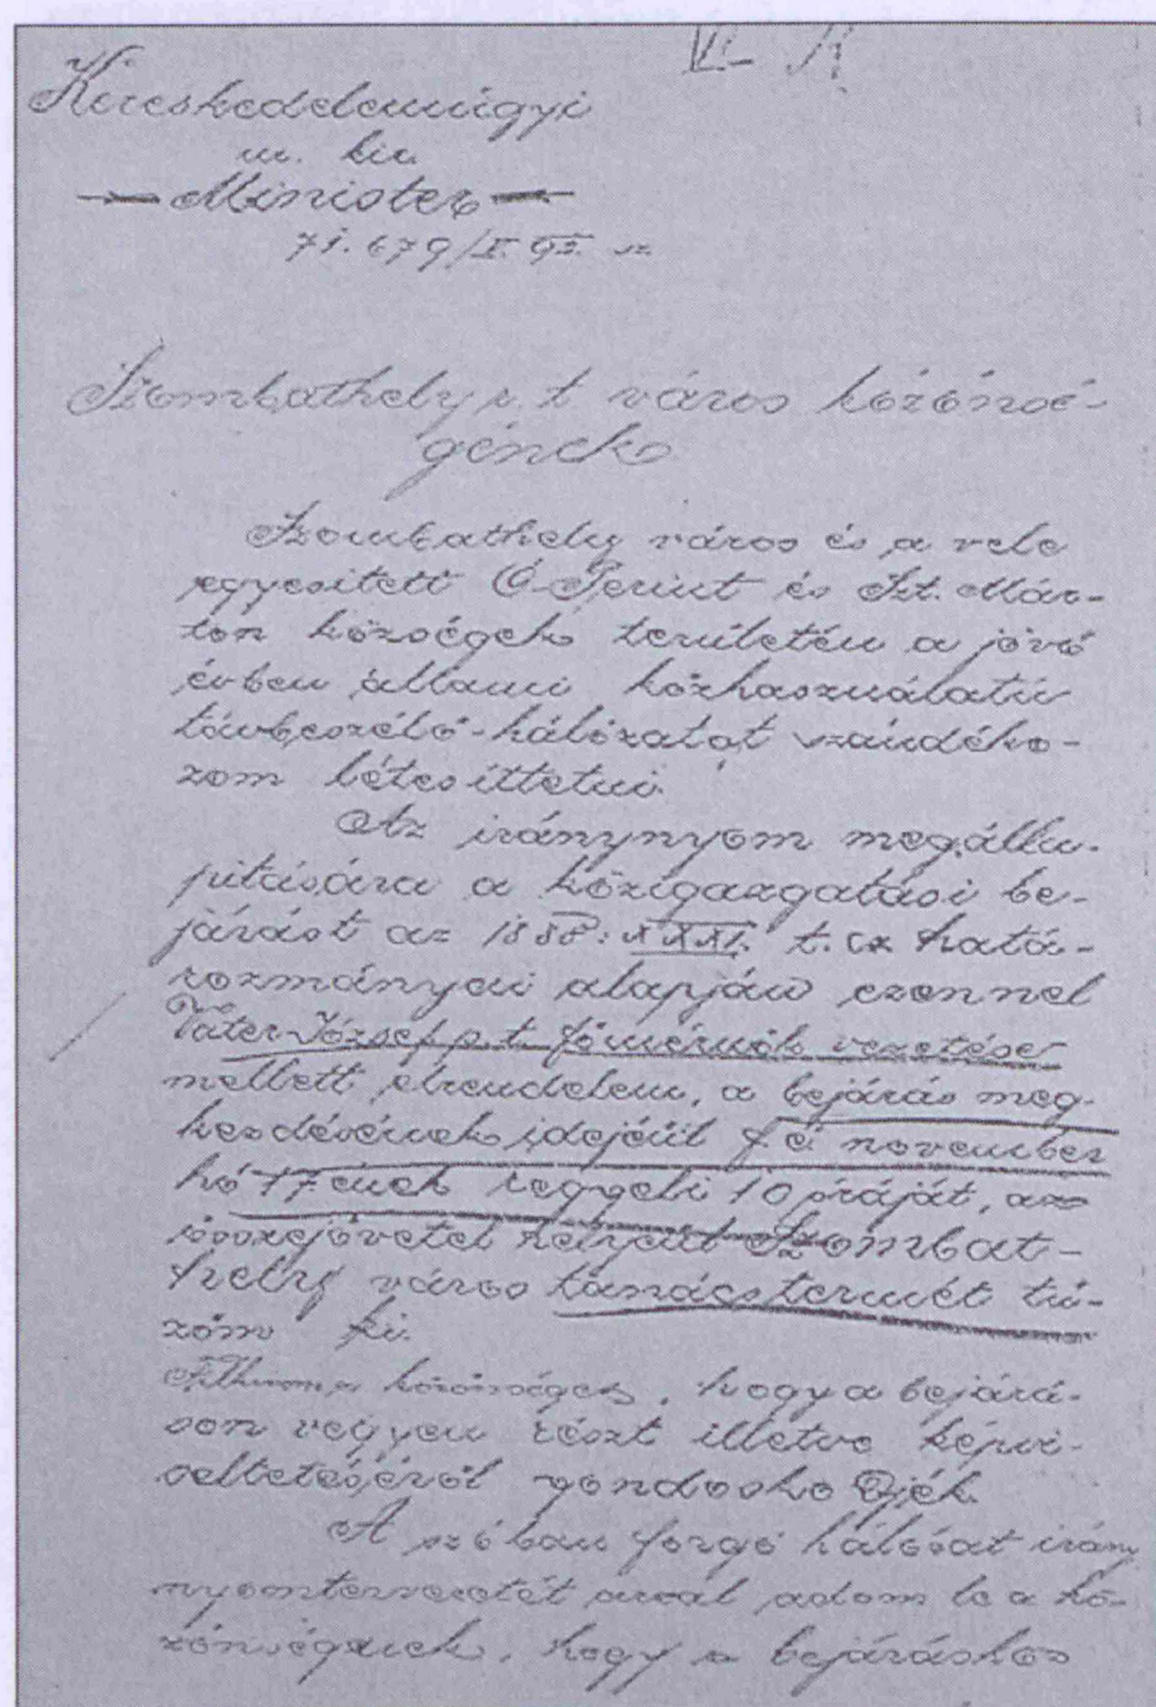 Kereskedelemügyi
m. kir.
Minister
71.679/I. 92. sz.
Szombathely r. t. város közönsé-
gének
Szombathely város és a vele
egyesített Ó-Perint és Szt. Már-
ton községek területén a jövő
évben állami közhasználatú
távbeszélő-hálózatot szándéko-
zom létesíttetni.
Az iránynyom megálla-
pítására a közigazgatási be-
járást az 1888: XXXI. t. cz hatá-
rozmányai alapján ezennel
Váter József p. t. főmérnök vezetése
mellett elrendelem, a bejárás meg-
kezdésének idejéül f. é. november
hó 17-ének reggeli 10 óráját, az
összejövetel helyéül Szombat-
hely város tanácstermét tű-
zöm ki.
Felhívom a közönséget, hogy a bejárá-
son vegyen részt illetve képvi-
seltetéséről gondoskodjék.
A szóban forgó hálózat irány
nyomtervezetét azzal adom le a kö-
zönségnek, hogy a bejáráshoz